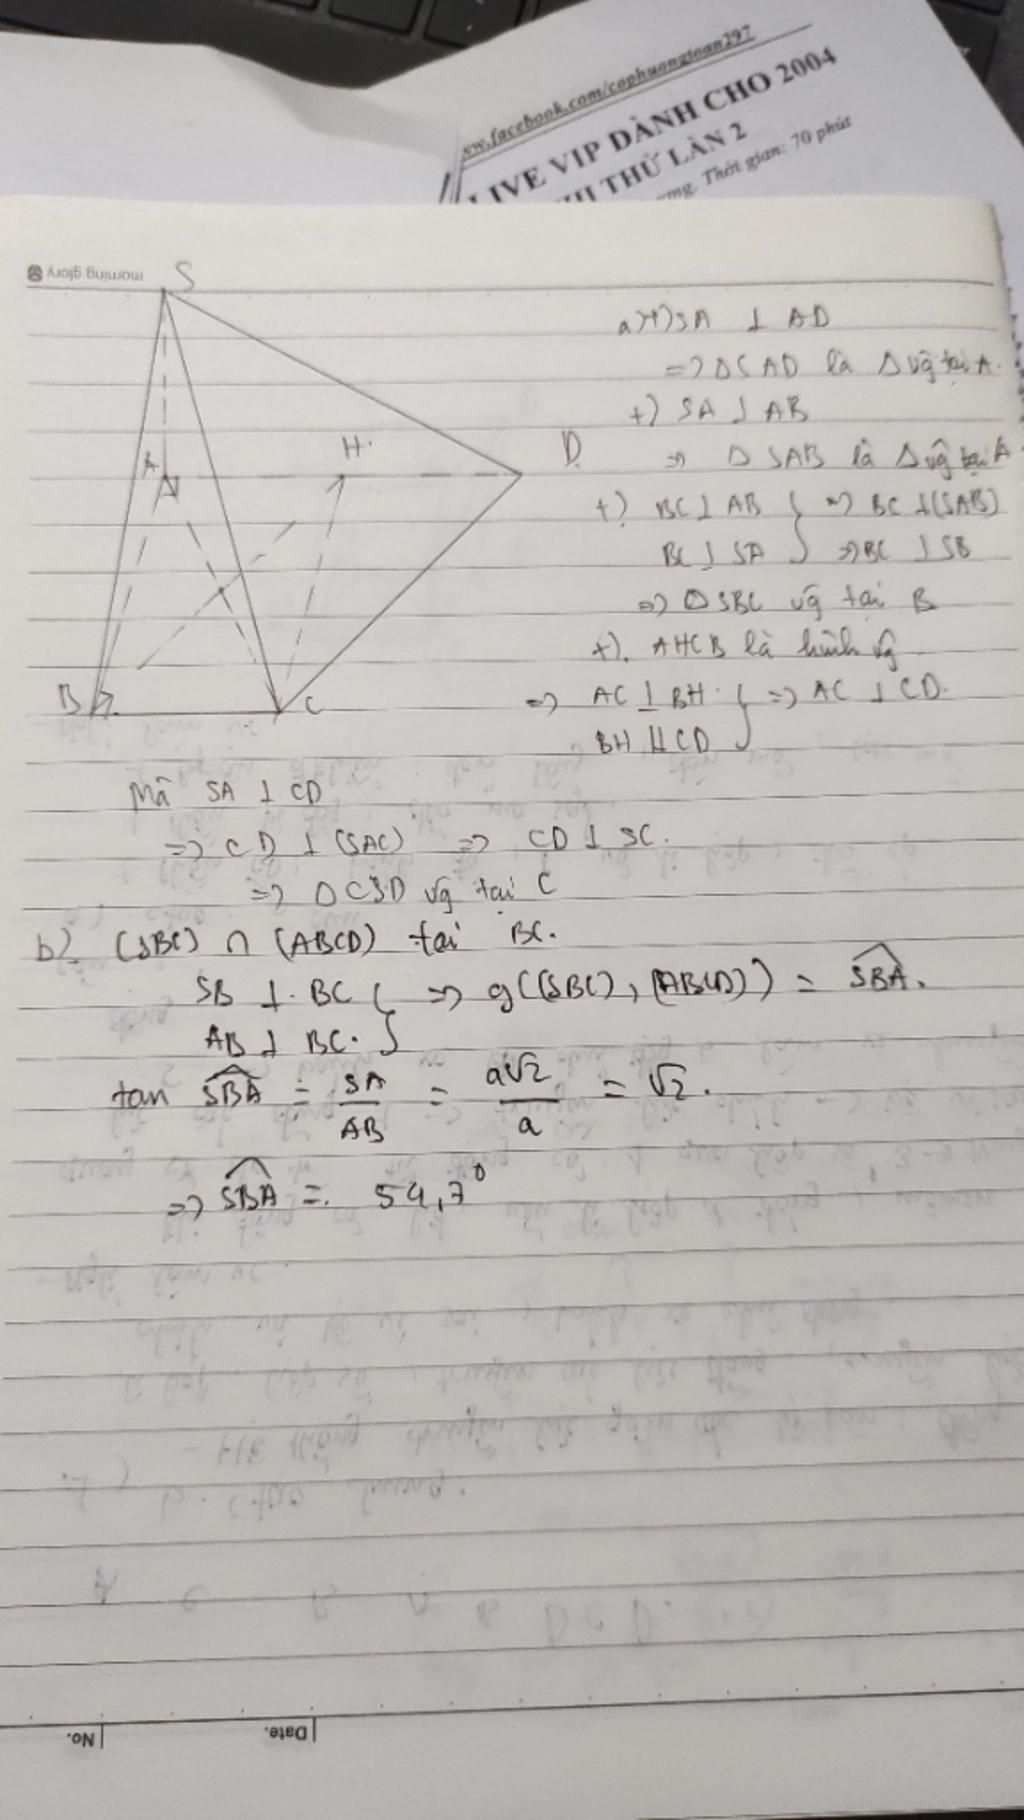 ww.facebook.com/cophuongtoan297
LIVE VIP DÀNH CHO 2004
THI THỬ LẦN 2
ơng. Thời gian: 70 phút
morning glory
S
A
H.
D.
B
C
a) +) SA ⊥ AD
=> ΔSAD là Δ vg tại A.
+) SA ⊥ AB
=> Δ SAB là Δ vg tại A
+) BC ⊥ AB } => BC ⊥ (SAB)
BC ⊥ SA } => BC ⊥ SB
=> Δ SBC vg tại B
+). AHCB là hình vg
=> AC ⊥ BH. } => AC ⊥ CD.
BH // CD }
Mà SA ⊥ CD
=> CD ⊥ (SAC) => CD ⊥ SC.
=> Δ CSD vg tại C
b) (SBC) ∩ (ABCD) tại BC.
SB ⊥ BC } => g((SBC), (ABCD)) = SBA.
AB ⊥ BC. }
tan SBA = SA/AB = a√2/a = √2.
=> SBA = 54,7°
No.
Date.